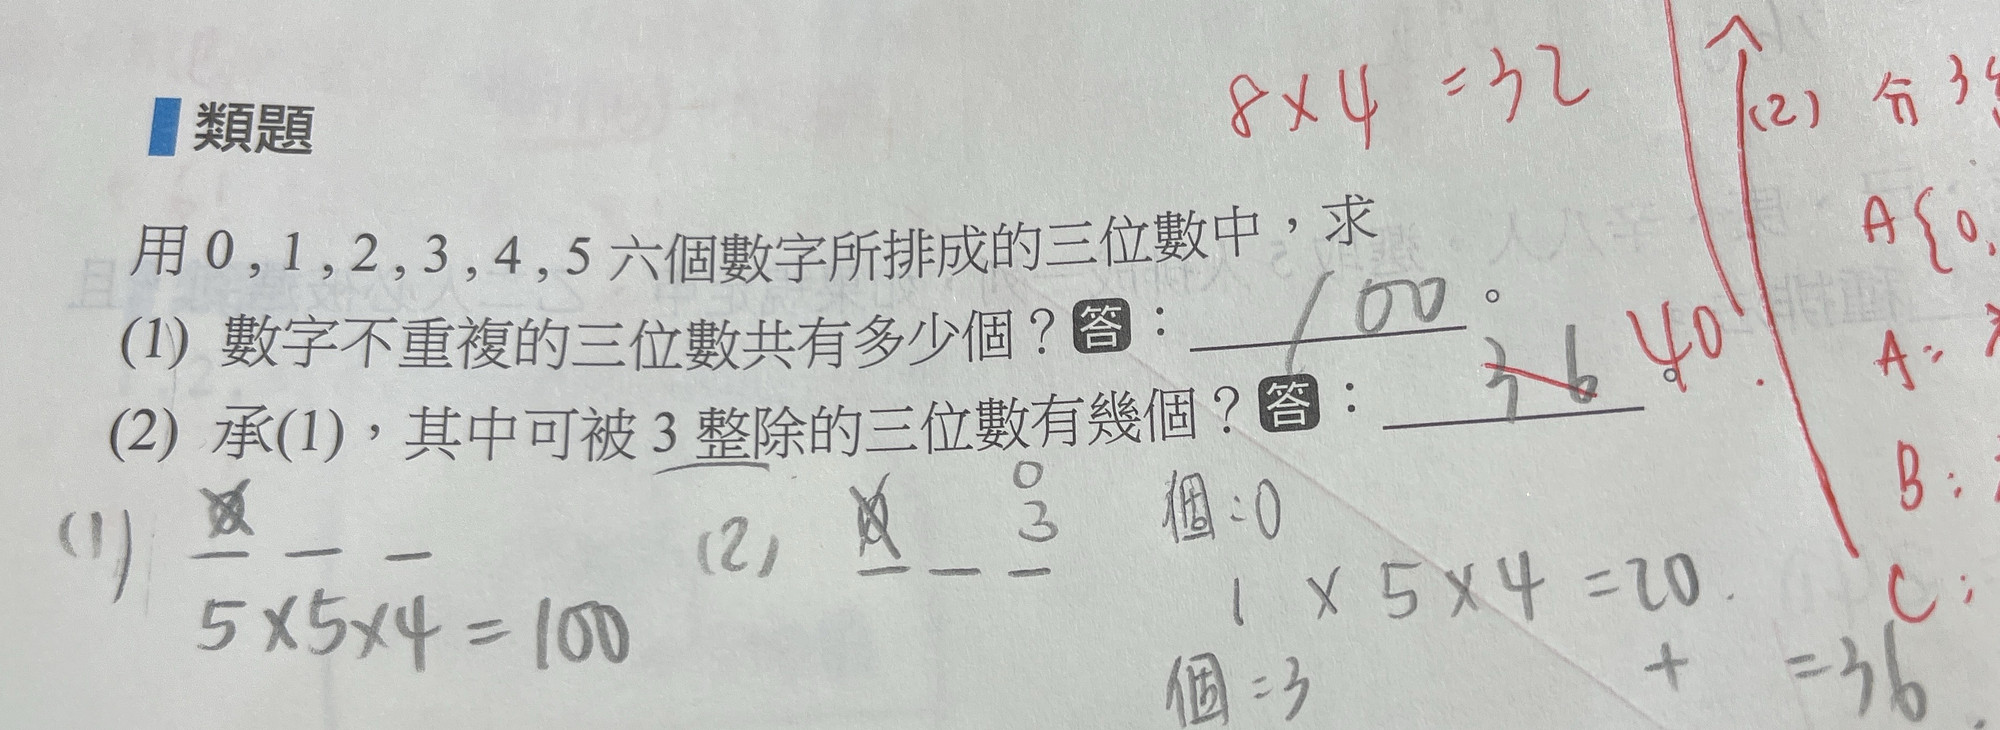 8×4 =32
類題
(2) 分 3
用 0 , 1 , 2 , 3 , 4 , 5 六個數字所排成的三位數中，求
A{0,
(1) 數字不重複的三位數共有多少個？答：100。
(2) 承(1)，其中可被 3 整除的三位數有幾個？答：36 40。
A:
B:
C:
(1) 0
5×5×4=100
(2) 0 0 3
個:0
1 × 5×4 =20.
個=3
+ =36.